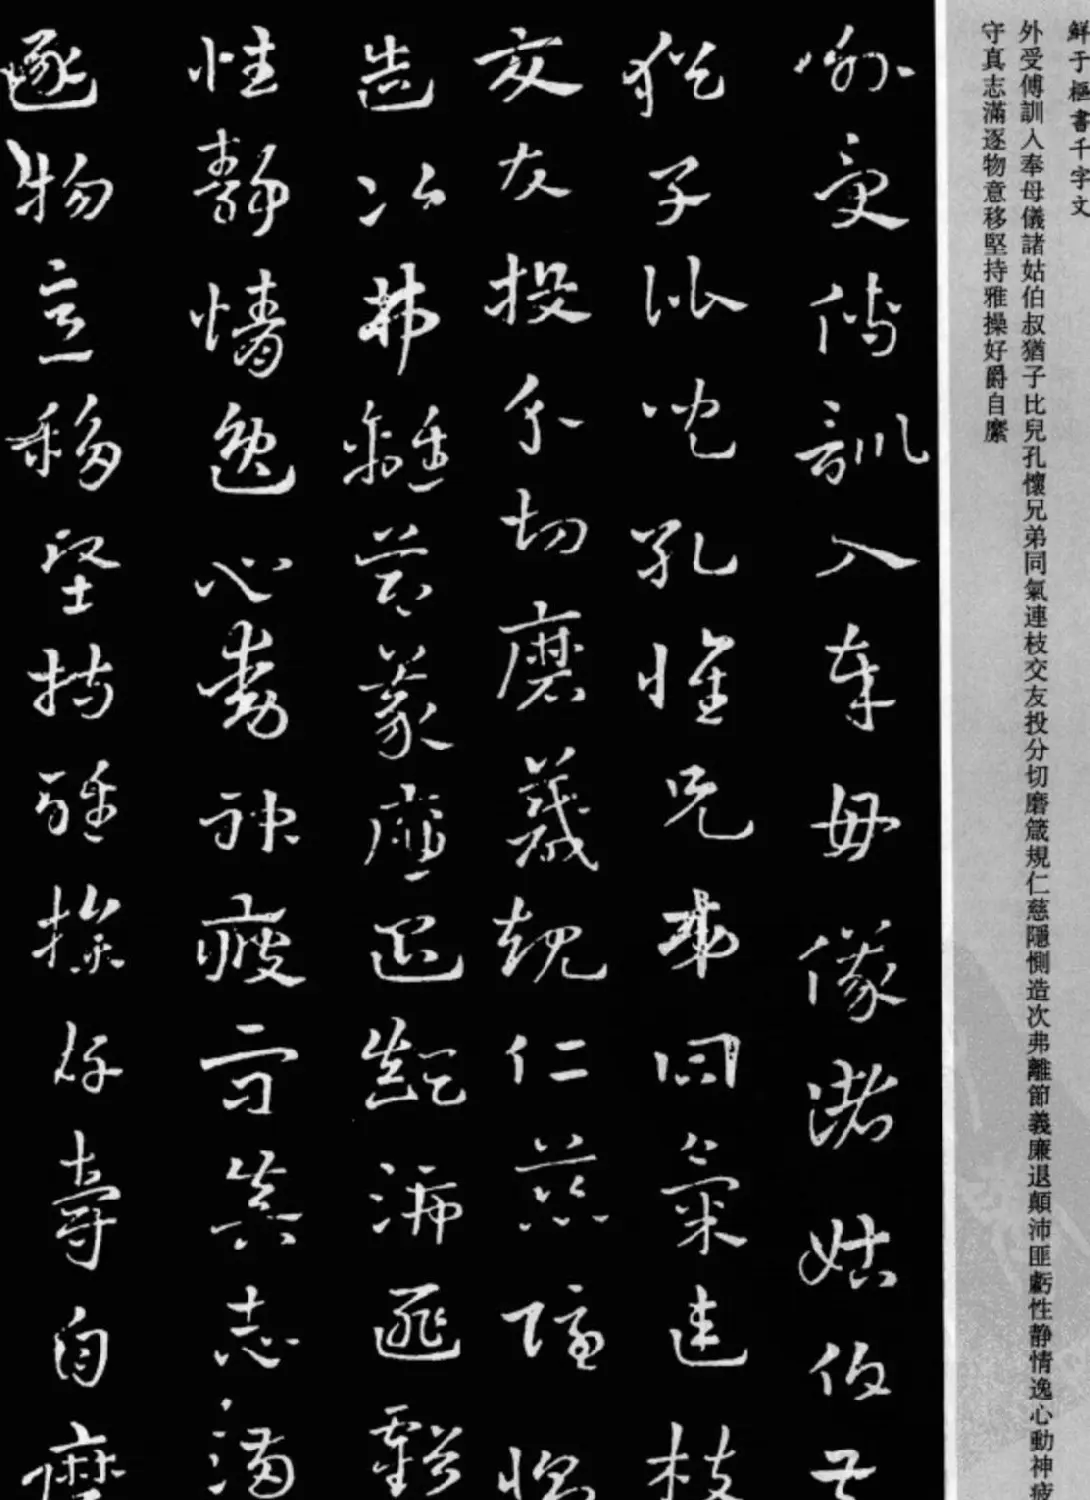 鮮于樞書千字文
外受傅訓入奉母儀諸姑伯叔猶子比兒孔懷兄弟同氣連枝交友投分切磨箴規仁慈隱惻造次弗離節義廉退顛沛匪虧性静情逸心動神疲
守真志滿逐物意移堅持雅操好爵自縻
外受傅訓入奉母儀諸姑伯叔
猶子比兒孔懷兄弟同氣連枝
交友投分切磨箴規仁慈隱惻
造次弗離節義廉退顛沛匪虧
性靜情逸心動神疲守真志滿
逐物意移堅持雅操好爵自縻